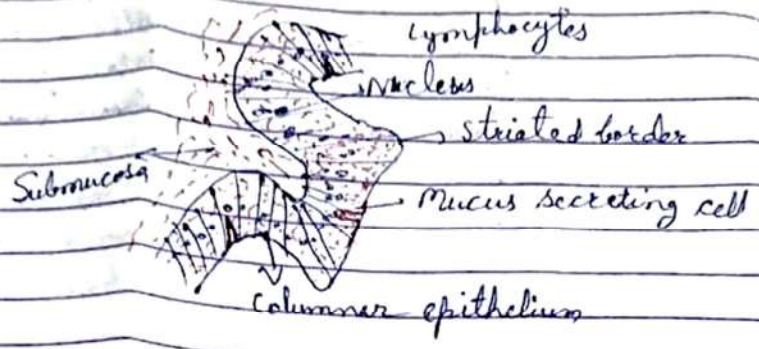 Lymphocytes
Nucleus
Striated border
Submucosa
Mucus secreting cell
Columnar epithelium